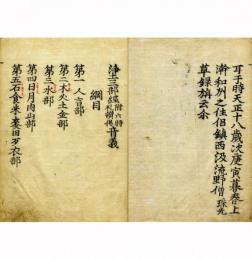 耳于時天正十八歳次庚寅暮春上
澣和州之住侶鎮西汲流野僧珠光
草録旃云尒
浄三部經附六時礼讃偈音義
綱目
第一人言部
第二木火土金部
第三水部
第四日月肉山部
第五石食米